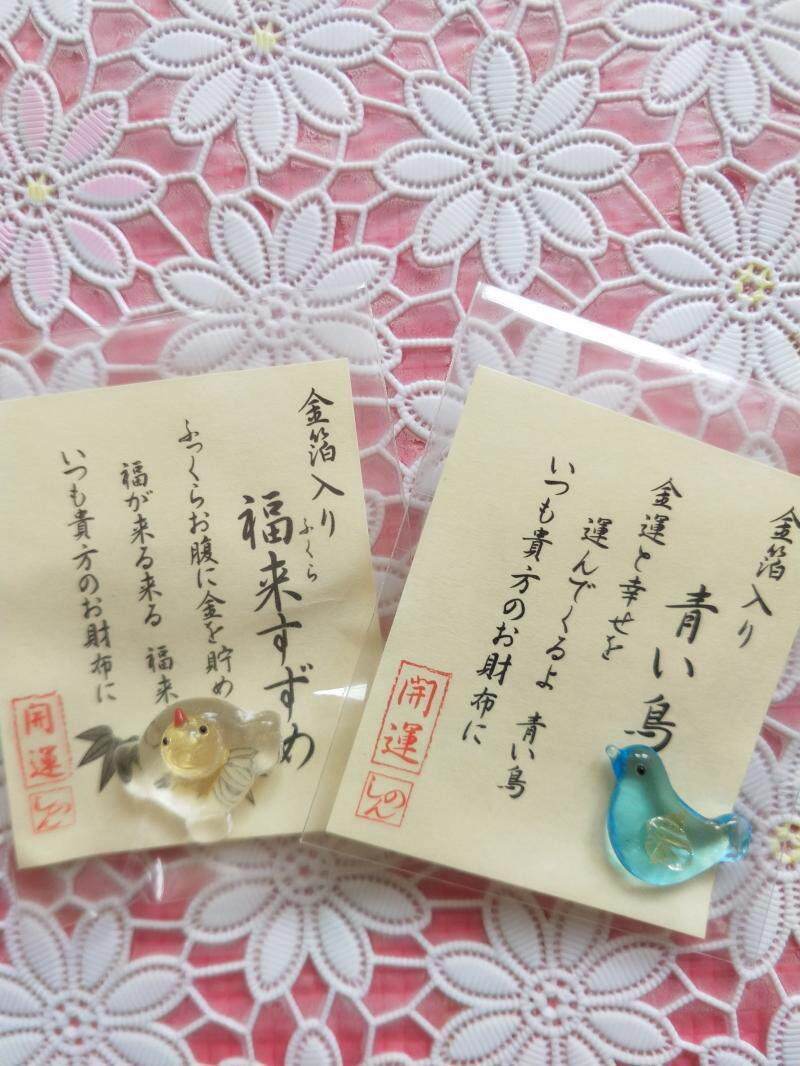 金箔入り
福来すずめ
ふくら
ふっくらお腹に金を貯め
福が来る来る 福来
いつも貴方のお財布に
開運
しのん
金箔入り
青い鳥
金運と幸せを
運んでくるよ 青い鳥
いつも貴方のお財布に
開運
しのん